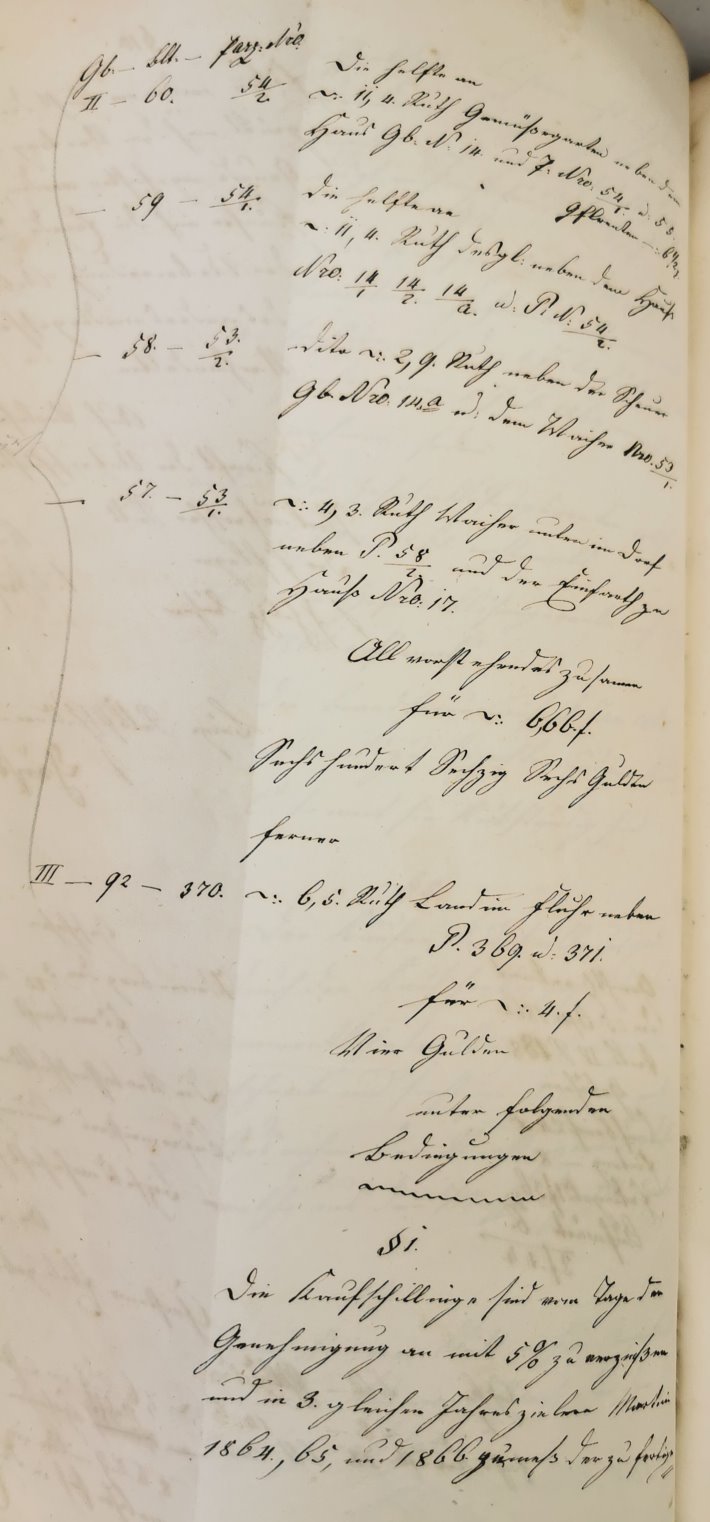 Gb. — blt. — Parz: Nro.
II — 60. 54/2
Die helfte an
∾: 11,4. Ruth Gemüsegarten neben dem
Haus Gb. N: 14. und P: Nro. 54/1 u: 55
— 59 — 54/1.
Die helfte an
∾: 11,4. Ruth desgl: neben dem Haus
Nro: 14/1 14/2. 14/a. u: P. N: 54/2.
— 58. — 53./2.
dito ∾: 2,9. Ruth neben der Scheuer
Gb. Nro. 14.a u: dem Waiher Nro. 53/1.
— 57. — 53/1.
∾: 4,3. Ruth Waiher unten im Dorf
neben P. 58/2 und der Einfarth zu
Hauß Nro: 17.
All vorstehendes zusamen
für ∾: 666.f.
Sechs hundert Sechzig Sechs Gulden
ferner
III — 92 — 370. ∾: 6,5. Ruth Land im Fluhr neben
P. 369. u: 371.
für ∾: 4.f.
Vier Gulden
unter folgenden
Bedingungen
§ 1.
Die Kaufschillinge sind vom Tage der
Genehmigung an mit 5% zu verzinßen
und in 3. gleichen Jahreszielern Martini
1864, 65, und 1866 gemeß der zu